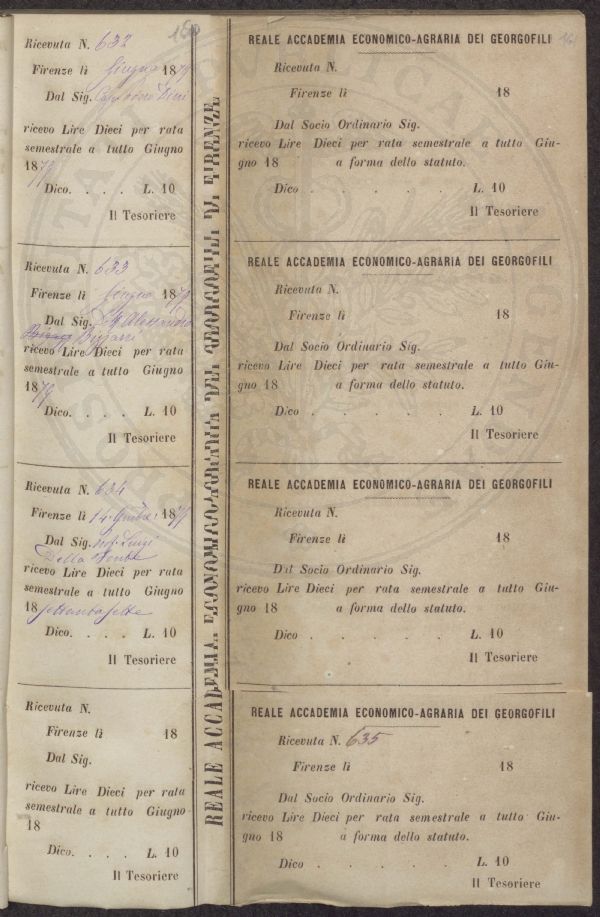 160
Ricevuta N. 632
Firenze lì Giugno 1879
Dal Sig.
ricevo Lire Dieci per rata
semestrale a tutto Giugno
1879
Dico. . . . L. 10
Il Tesoriere
Ricevuta N. 633
Firenze lì Giugno 1879
Dal Sig. Alessandro
ricevo Lire Dieci per rata
semestrale a tutto Giugno
1879
Dico. . . . L. 10
Il Tesoriere
Ricevuta N. 634
Firenze lì 14 1877
Dal Sig. Luigi
Della
ricevo Lire Dieci per rata
semestrale a tutto Giugno
18 settantasette
Dico. . . . L. 10
Il Tesoriere
Ricevuta N.
Firenze lì 18
Dal Sig.
ricevo Lire Dieci per rata
semestrale a tutto Giugno
18
Dico. . . . L. 10
Il Tesoriere
REALE ACCADEMIA ECONOMICO-AGRARIA DEI GEORGOFILI DI FIRENZE
161
REALE ACCADEMIA ECONOMICO-AGRARIA DEI GEORGOFILI
Ricevuta N.
Firenze lì 18
Dal Socio Ordinario Sig.
ricevo Lire Dieci per rata semestrale a tutto Giu-
gno 18 a forma dello statuto.
Dico . . . . . L. 10
Il Tesoriere
REALE ACCADEMIA ECONOMICO-AGRARIA DEI GEORGOFILI
Ricevuta N.
Firenze lì 18
Dal Socio Ordinario Sig.
ricevo Lire Dieci per rata semestrale a tutto Giu-
gno 18 a forma dello statuto.
Dico . . . . . L. 10
Il Tesoriere
REALE ACCADEMIA ECONOMICO-AGRARIA DEI GEORGOFILI
Ricevuta N.
Firenze lì 18
Dal Socio Ordinario Sig.
ricevo Lire Dieci per rata semestrale a tutto Giu-
gno 18 a forma dello statuto.
Dico . . . . . L. 10
Il Tesoriere
REALE ACCADEMIA ECONOMICO-AGRARIA DEI GEORGOFILI
Ricevuta N. 635
Firenze lì 18
Dal Socio Ordinario Sig.
ricevo Lire Dieci per rata semestrale a tutto Giu-
gno 18 a forma dello statuto.
Dico . . . . . L. 10
Il Tesoriere